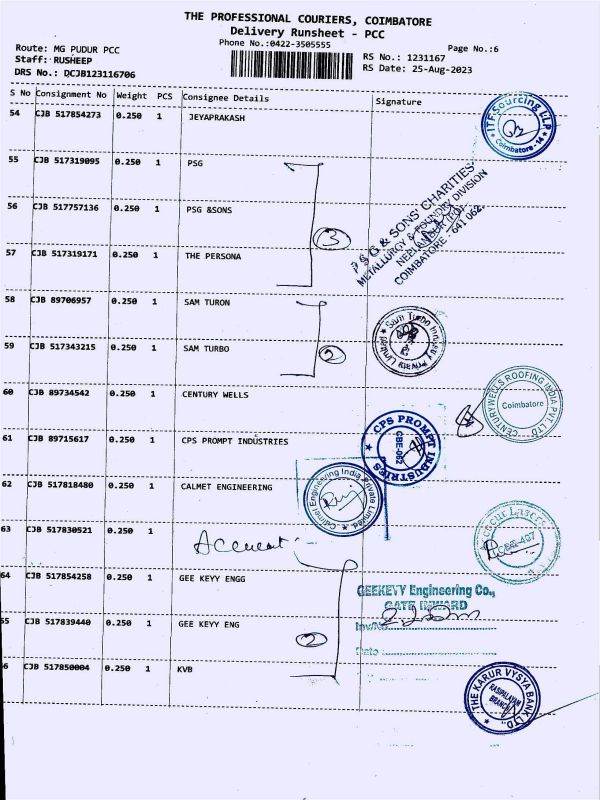 THE PROFESSIONAL COURIERS, COIMBATORE
Delivery Runsheet - PCC
Phone No.:0422-3505555
Page No.:6
Route: MG PUDUR PCC
RS No.: 1231167
Staff: RUSHEEP
RS Date: 25-Aug-2023
DRS No.: DCJB123116706
S No Consignment No Weight PCS Consignee Details Signature
54 CJB 517854273 0.250 1 JEYAPRAKASH
ITF Sourcing LLP
Coimbatore-14
55 CJB 517319095 0.250 1 PSG
56 CJB 517757136 0.250 1 PSG &SONS
3
P S G & SONS' CHARITIES
METALLURGY & FOUNDRY DIVISION
COIMBATORE - 641 062.
57 CJB 517319171 0.250 1 THE PERSONA
58 CJB 89706957 0.250 1 SAM TURON
2
59 CJB 517343215 0.250 1 SAM TURBO
60 CJB 89734542 0.250 1 CENTURY WELLS
CENTURYWELLS ROOFING INDIA PVT. LTD
Coimbatore
61 CJB 89715617 0.250 1 CPS PROMPT INDUSTRIES
CPS PROMPT INDUSTRIES
CBE-062
62 CJB 517818480 0.250 1 CALMET ENGINEERING
Calmet Engineering India Private Limited
63 CJB 517830521 0.250 1
64 CJB 517854258 0.250 1 GEE KEYY ENGG
GEEKEYY Engineering Co.,
GATE INWARD
65 CJB 517839440 0.250 1 GEE KEYY ENG
2
Inv/No
Date
66 CJB 517850004 0.250 1 KVB
THE KARUR VYSYA BANK LTD.,
BRANCH